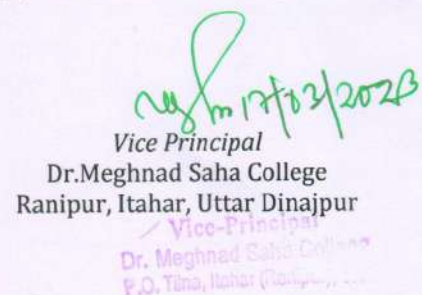 17/03/2023
Vice Principal
Dr.Meghnad Saha College
Ranipur, Itahar, Uttar Dinajpur
Vice-Principal
Dr. Meghnad Saha College
P.O. Tilna, Itahar